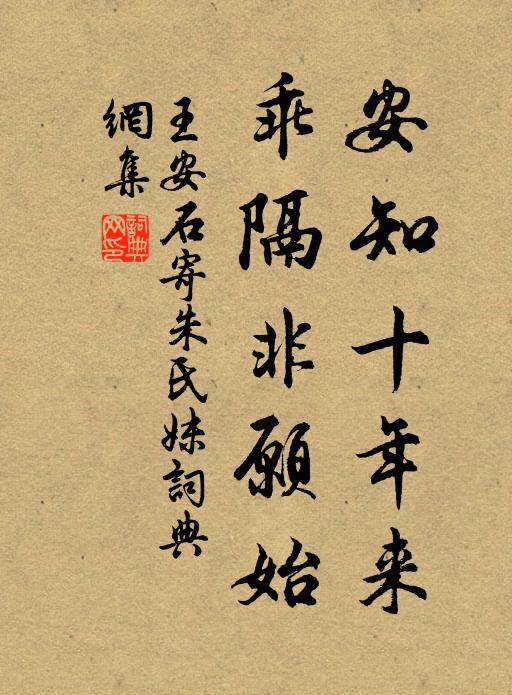 安知十年来
乖隔非願始
王安石寄朱氏妹詞典
網集
詞典
网印